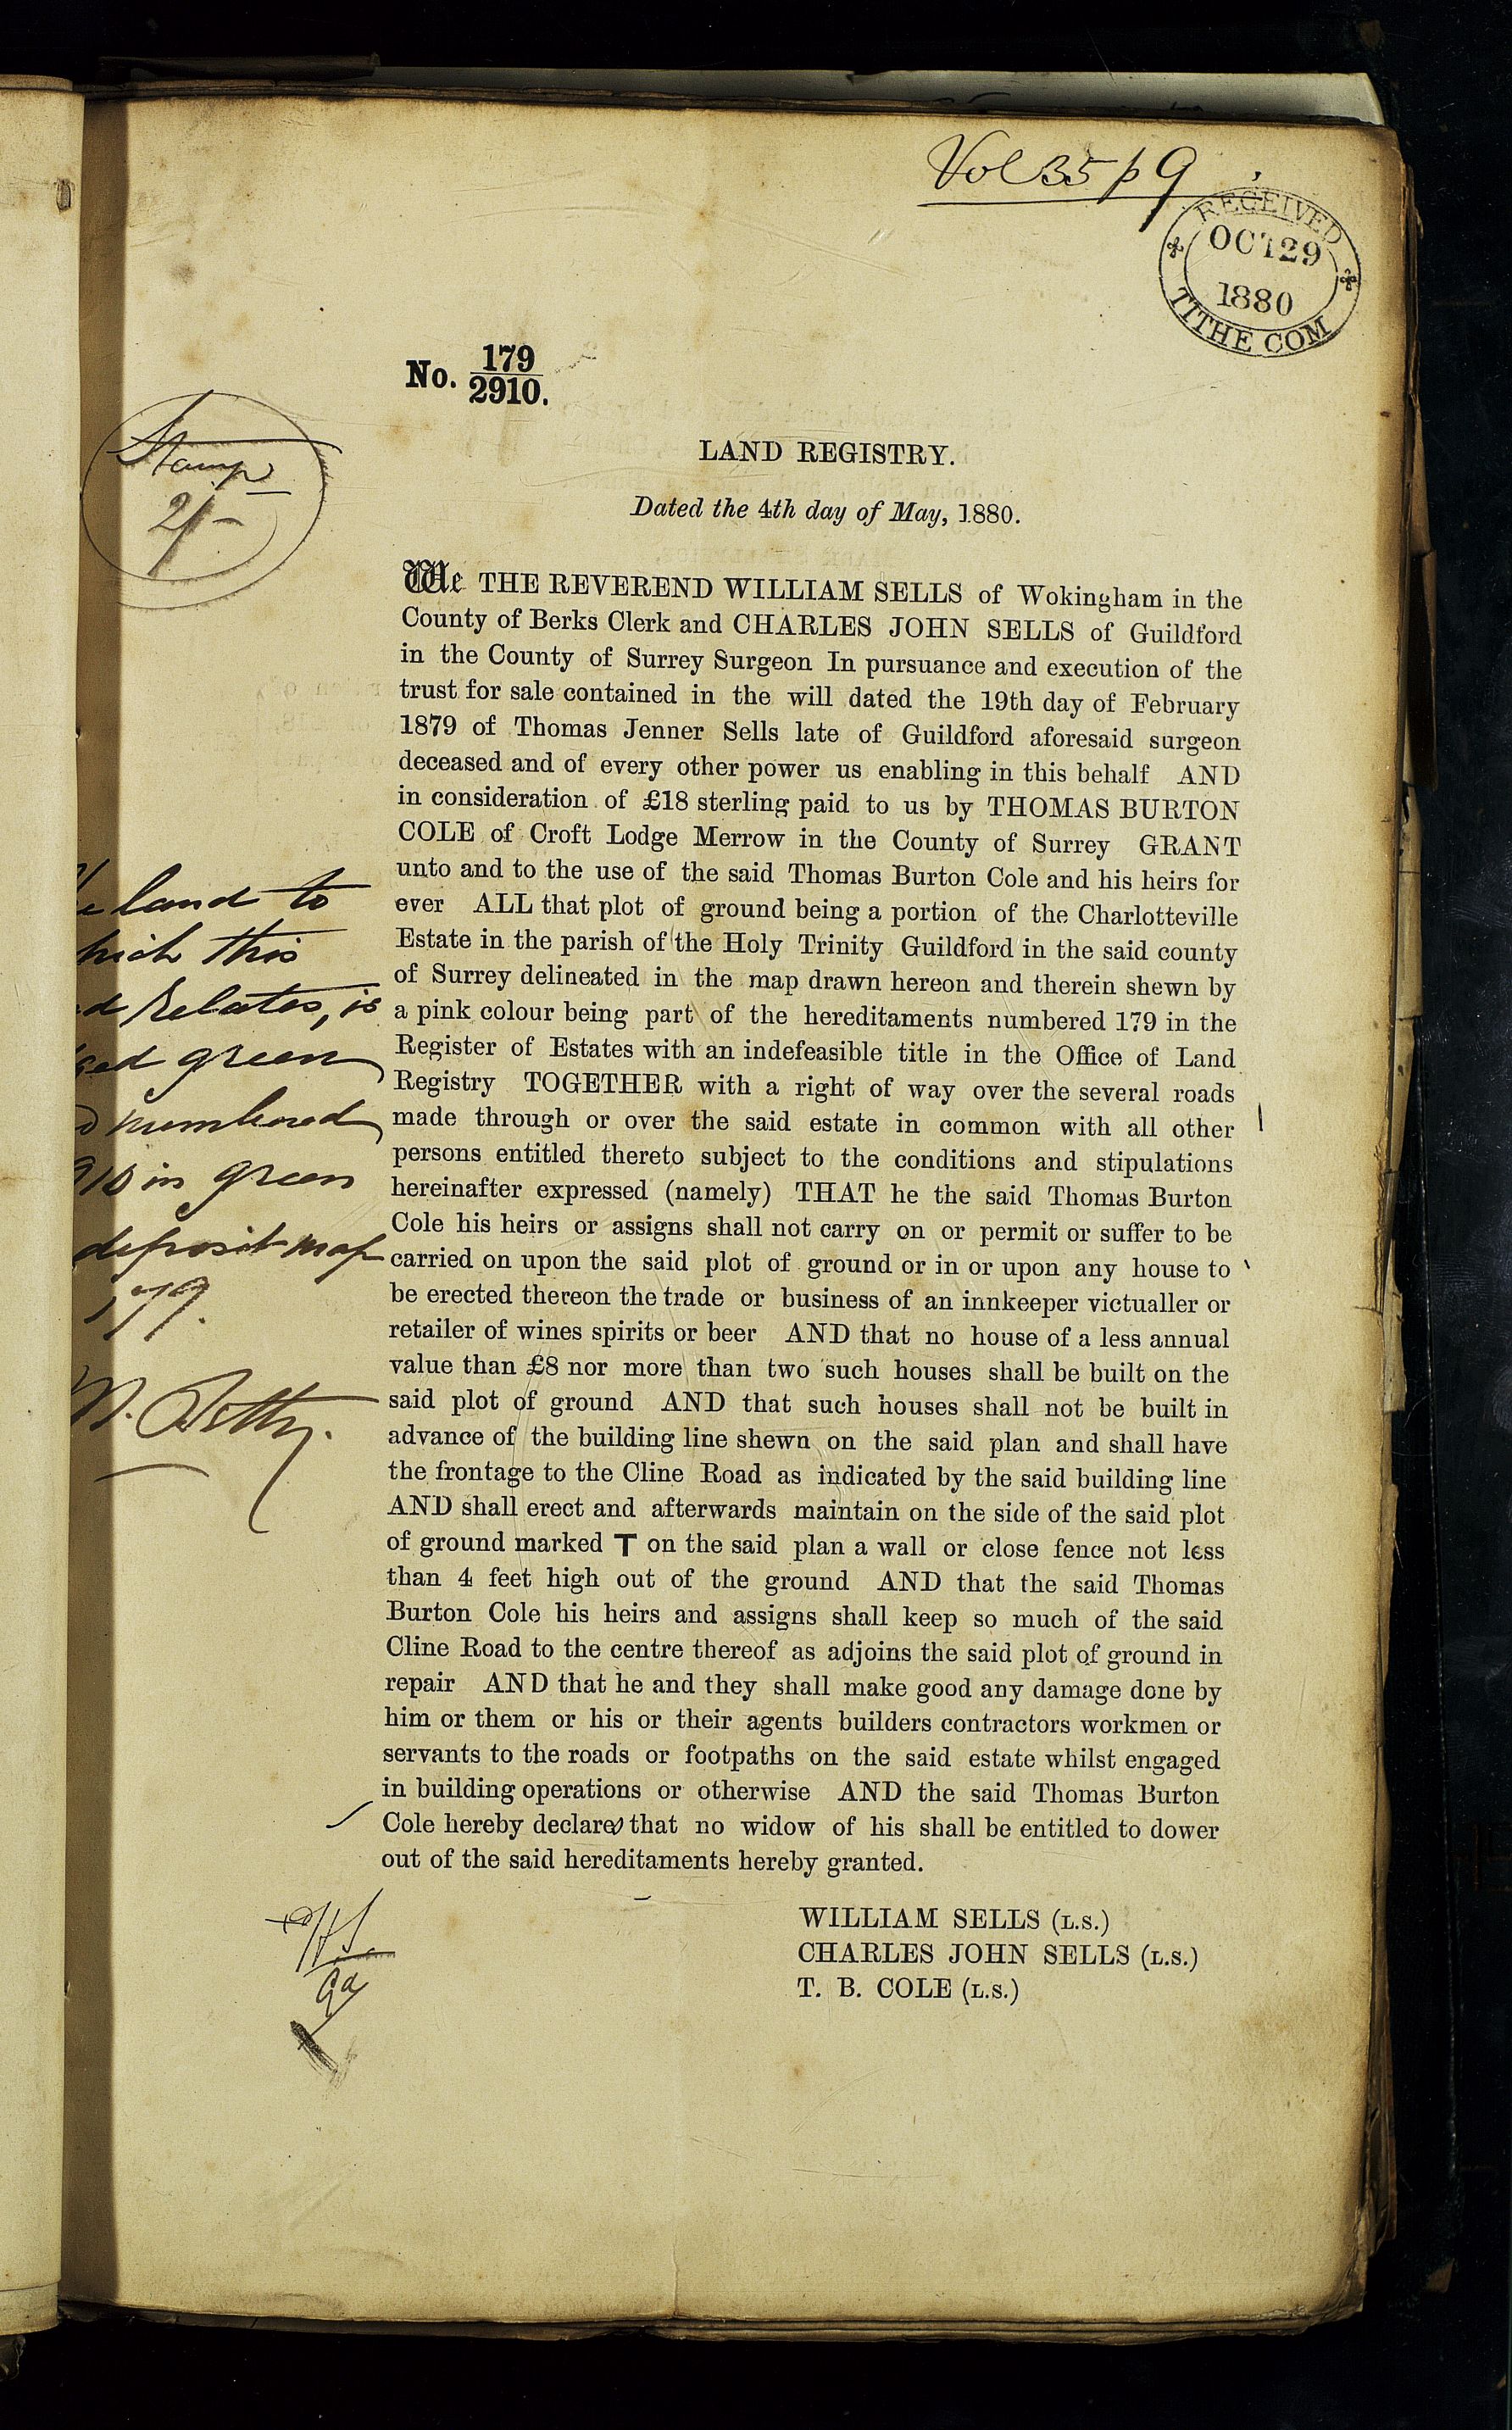 Vol 35 p 9
RECEIVED
OCT 29
1880
TITHE COM
No. 179
2910.
Stamp
2/-
LAND REGISTRY.
Dated the 4th day of May, 1880.
We THE REVEREND WILLIAM SELLS of Wokingham in the
County of Berks Clerk and CHARLES JOHN SELLS of Guildford
in the County of Surrey Surgeon In pursuance and execution of the
trust for sale contained in the will dated the 19th day of February
1879 of Thomas Jenner Sells late of Guildford aforesaid surgeon
deceased and of every other power us enabling in this behalf AND
in consideration of £18 sterling paid to us by THOMAS BURTON
COLE of Croft Lodge Merrow in the County of Surrey GRANT
unto and to the use of the said Thomas Burton Cole and his heirs for
ever ALL that plot of ground being a portion of the Charlotteville
Estate in the parish of the Holy Trinity Guildford in the said county
of Surrey delineated in the map drawn hereon and therein shewn by
a pink colour being part of the hereditaments numbered 179 in the
Register of Estates with an indefeasible title in the Office of Land
Registry TOGETHER with a right of way over the several roads
made through or over the said estate in common with all other
persons entitled thereto subject to the conditions and stipulations
hereinafter expressed (namely) THAT he the said Thomas Burton
Cole his heirs or assigns shall not carry on or permit or suffer to be
carried on upon the said plot of ground or in or upon any house to
be erected thereon the trade or business of an innkeeper victualler or
retailer of wines spirits or beer AND that no house of a less annual
value than £8 nor more than two such houses shall be built on the
said plot of ground AND that such houses shall not be built in
advance of the building line shewn on the said plan and shall have
the frontage to the Cline Road as indicated by the said building line
AND shall erect and afterwards maintain on the side of the said plot
of ground marked T on the said plan a wall or close fence not less
than 4 feet high out of the ground AND that the said Thomas
Burton Cole his heirs and assigns shall keep so much of the said
Cline Road to the centre thereof as adjoins the said plot of ground in
repair AND that he and they shall make good any damage done by
him or them or his or their agents builders contractors workmen or
servants to the roads or footpaths on the said estate whilst engaged
in building operations or otherwise AND the said Thomas Burton
Cole hereby declares that no widow of his shall be entitled to dower
out of the said hereditaments hereby granted.
WILLIAM SELLS (L.S.)
CHARLES JOHN SELLS (L.S.)
T. B. COLE (L.S.)
land to
hich this
d relates, is
ged green
numbered
910 in green
deposit map
179.